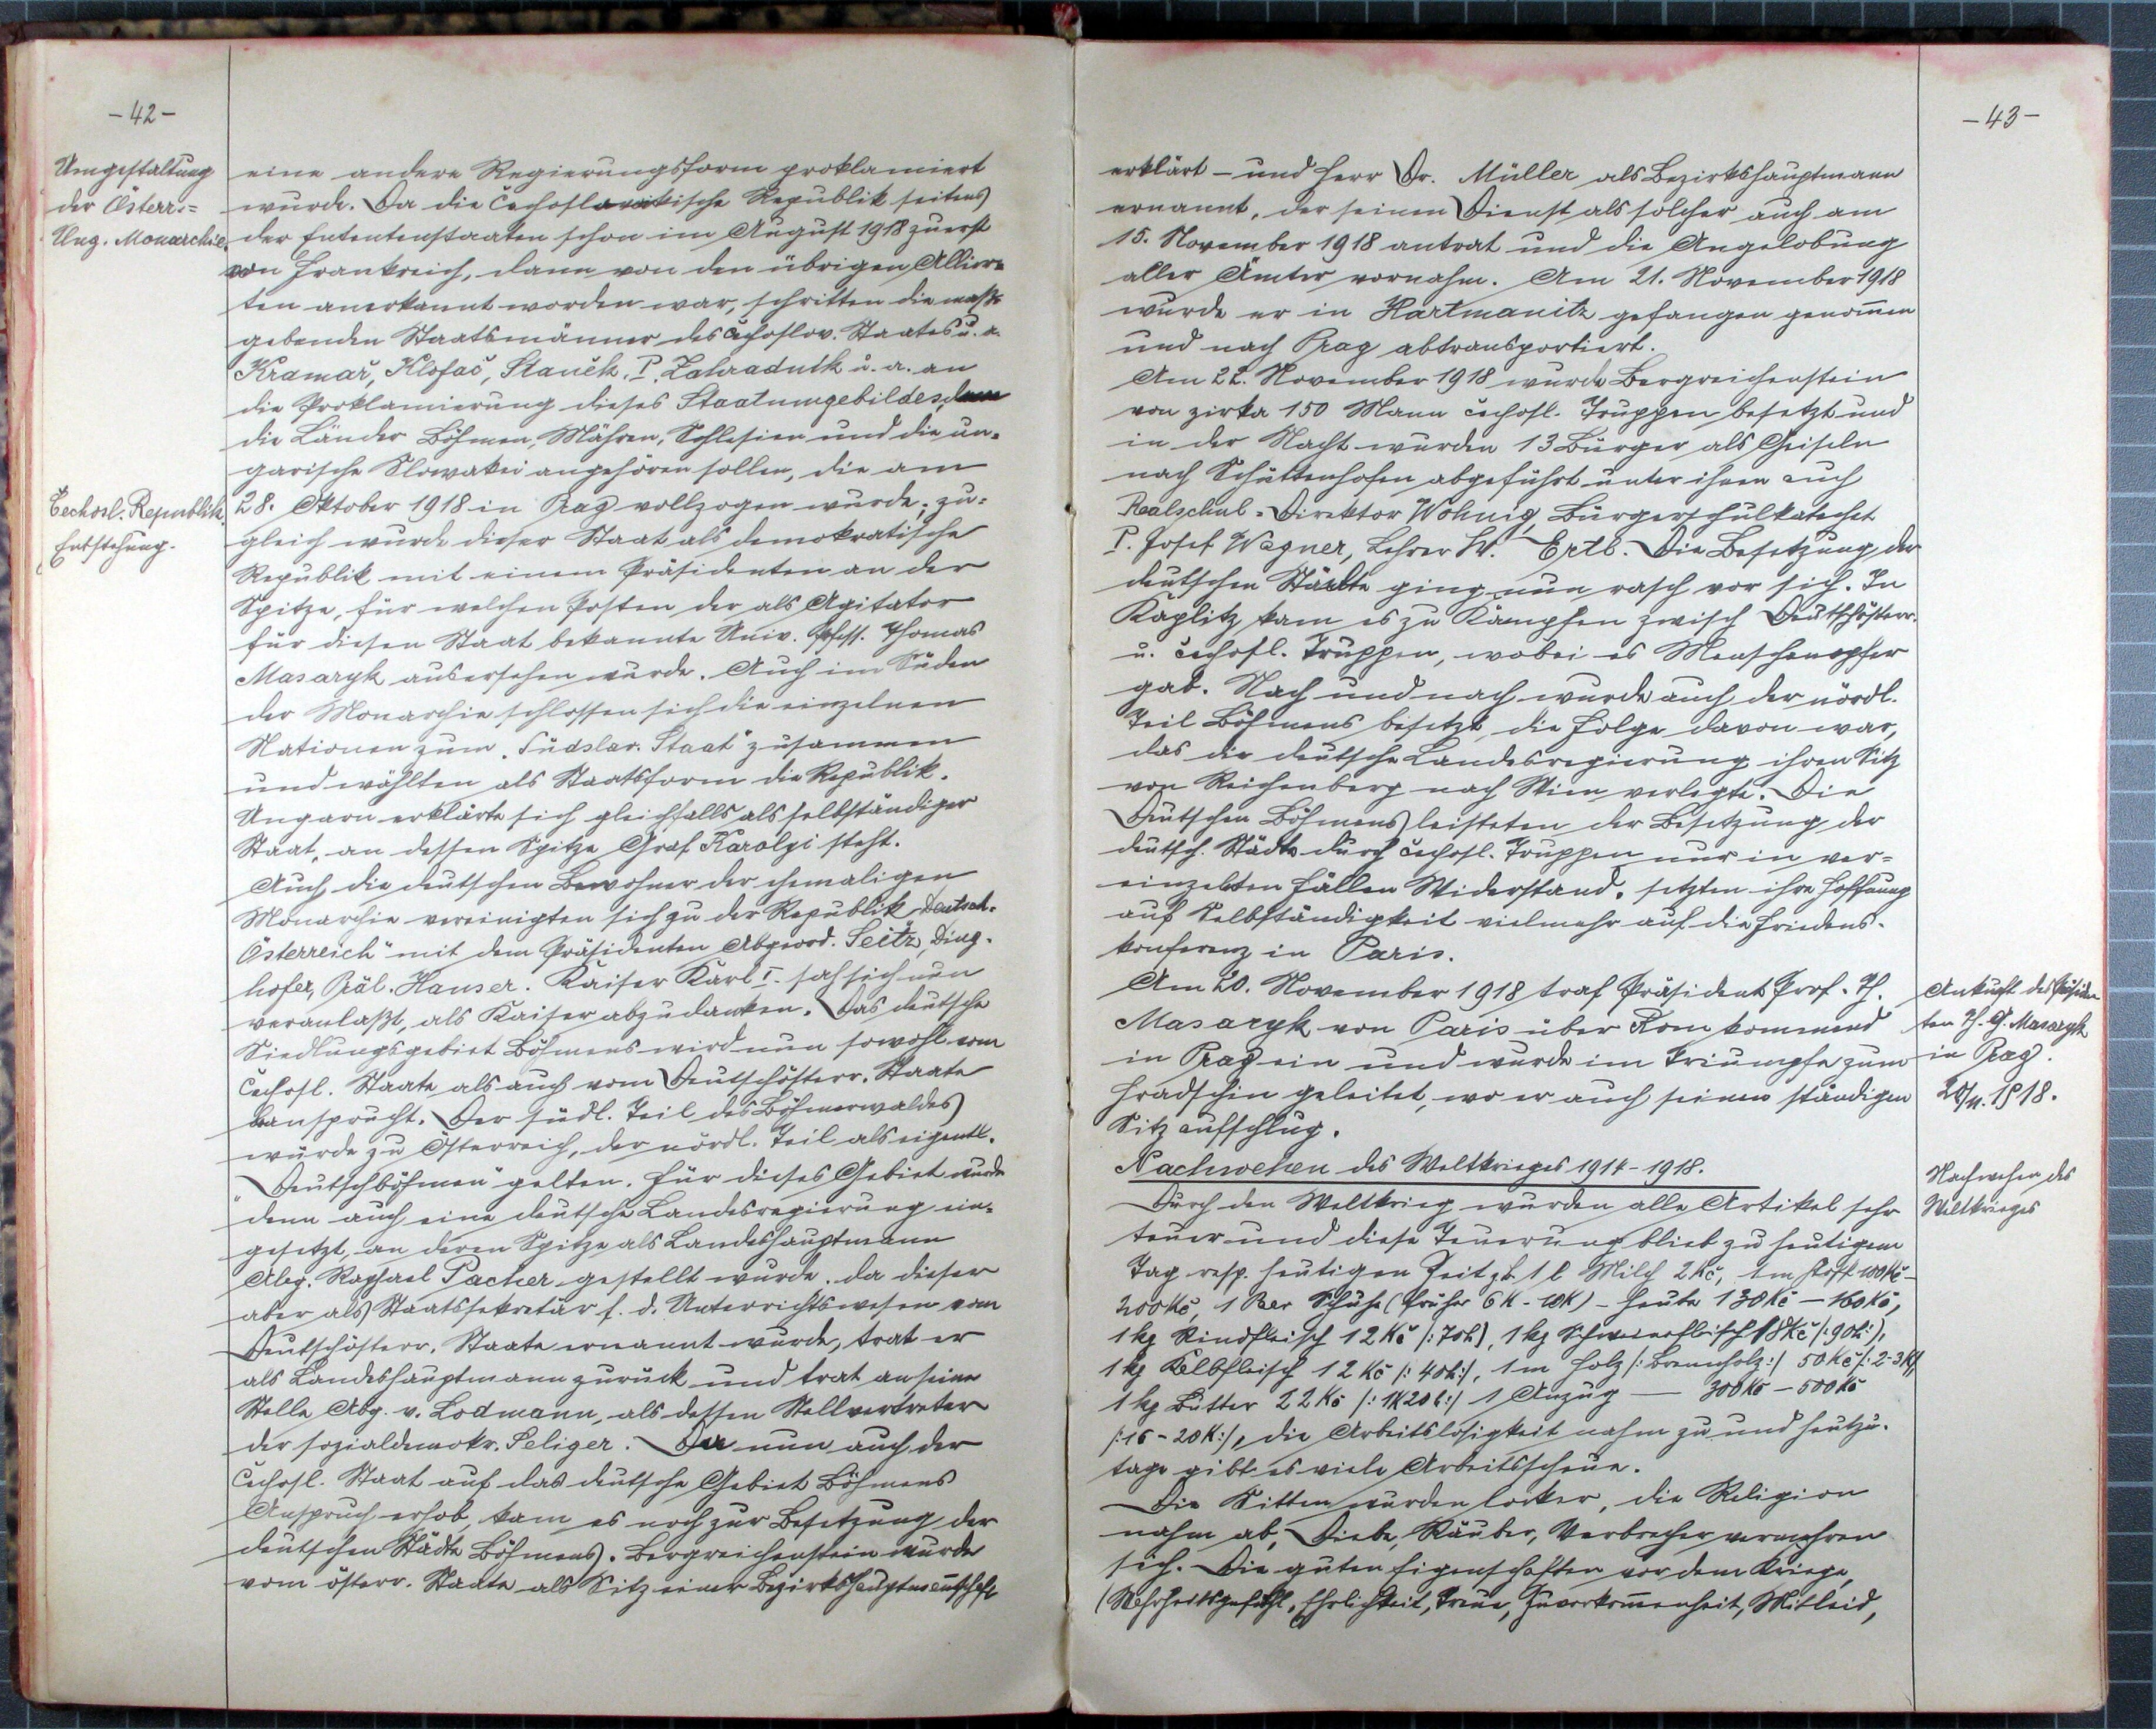 -42-
Umgestaltung
der Österr.=
Ung. Monarchie.
eine andere Regierungsform proklamiert
wurde. Da die čechoslovakische Republik seitens
der Ententenstaaten schon im August 1918 zuerst
von Frankreich, dann von den übrigen Alliier=
ten anerkannt worden war, schritten die maß=
gebenden Staatsmänner des čechoslov. Staates u. a.
Kramař, Klofač, Staněk, P. Zahradnik u. a. an
die Proklamierung dieses Staatumgebildes, dem
die Länder Böhmen, Mähren, Schlesien und die un=
garische Slowakei angehören sollen, die am
Čechosl. Republik.
Entstehung.
28. Oktober 1918 in Prag vollzogen wurde; zu=
gleich wurde dieser Staat als demokratische
Republik mit einem Präsidenten an der
Spitze, für welchen Posten der als Agitator
für diesen Staat bekannte Univ. Profess. Thomas
Masaryk ausersehen wurde. Auch im Süden
der Monarchie schlossen sich die einzelnen
Nationen zum „Südslav. Staat" zusammen
und wählten als Staatsform die Republik.
Ungarn erklärte sich gleichfalls als selbständiger
Staat, an dessen Spitze Graf Karolyi steht.
Auch die deutschen Bewohner der ehemaligen
Monarchie vereinigten sich zu der Republik „Deutsch=
Österreich" mit dem Präsidenten Abgeord. Seitz, Ding=
hofer, Präl. Hauser. Kaiser Karl I. sah sich nun
veranlaßt, als Kaiser abzudanken. Das deutsche
Siedlungsgebiet Böhmens wird nun sowohl vom
čechosl. Staate als auch vom Deutschösterr. Staate
beansprucht. Der südl. Teil des Böhmerwaldes
würde zu Österreich, der nördl. Teil als eigentl.
„Deutschböhmen" gelten. Für dieses Gebiet wurde
denn auch eine deutsche Landesregierung ein=
gesetzt, an deren Spitze als Landeshauptmann
Abg. Raphael Pacher gestellt wurde. Da dieser
aber als Staatssekretär f. d. Unterrichtswesen vom
Deutschösterr. Staate ernannt wurde, trat er
als Landeshauptmann zurück und trat an seine
Stelle Abg. v. Lodmann, als dessen Stellvertreter
der sozialdemokr. Seliger. Da nun auch der
čechosl. Staat auf das deutsche Gebiet Böhmens
Anspruch erhob, kam es noch zur Besetzung der
deutschen Städte Böhmens. Bergreichenstein wurde
vom österr. Staate als Sitz einer Bezirkshauptmannschaft
-43-
erklärt - und Herr Dr. Müller als Bezirkshauptmann
ernannt, der seinen Dienst als solcher auch am
15. November 1918 antrat und die Angelobung
aller Ämter vornahm. Am 21. November 1918
wurde er in Hartmanitz gefangen genom̄en
und nach Prag abtransportiert.
Am 22. November 1918 wurde Bergreichenstein
von zirka 150 Mann čechosl. Truppen besetzt und
in der Nacht wurden 13 Bürger als Geiseln
nach Schüttenhofen abgeführt unter ihnen auch
Realschul=Direktor Wohnig, Bürgerschulkatechet
P. Josef Wagner, Lehrer W. Ertl. Die Besetzung der
deutschen Städte ging nun rasch vor sich. In
Kaplitz kam es zu Kämpfen zwisch Deutschösterr.
u. čechosl. Truppen, wobei es Menschenopfer
gab. Nach und nach wurde auch der nördl.
Teil Böhmens besetzt, die Folge davon war,
das die deutsche Landesregierung ihren Sitz
von Reichenberg nach Wien verlegte. Die
Deutschen Böhmens leisteten der Besetzung der
deutsch. Städte durch čechosl. Truppen nur in ver=
einzelten Fällen Widerstand, setzten ihre Hoffnung
auf Selbständigkeit vielmehr auf die Friedens=
konferenz in Paris.
Am 20. November 1918 traf Präsident Prof. Th.
Masaryk von Paris über Rom kommend
in Prag ein und wurde im Triumpfe zum
Hradschin geleitet, wo er auch seinen ständigen
Sitz aufschlug.
Ankunft des Präsiden
ten Th. G. Masaryk
in Prag.
20/11. 1918.
Nachwehen des Weltkrieges 1914-1918.
Nachwehen des
Weltkrieges
Durch den Weltkrieg wurden alle Artikel sehr
teuer und diese Teuerung blieb zu heutigem
Tag resp. heutigen Zeit z.B. 1 l Milch 2 Kč, 1 m Stoff 100 Kč -
200 Kč, 1 Paar Schuhe (früher 6 K - 10 K) - heute 130 Kč - 160 Kč,
1 kg Rindfleisch 12 Kč /: 70 h), 1 kg Schweinefleisch 18 Kč /: 90 h:),
1 kg Kalbfleisch 12 Kč /: 40 h:/, 1 m Holz /: Brennholz:/ 50 Kč /: 2-3 K/,
1 kg Butter 22 Kč /: 1 K 20 h:/ 1 Anzug - 300 Kč - 500 Kč
/: 16 - 20 K:/, die Arbeitslosigkeit nahm zu und heutzu=
tage gibt es viele Arbeitsscheue.
Die Sitten wurden locker, die Religion
nahm ab, Diebe, Räuber, Verbrecher vermehren
sich. Die guten Eigenschaften vor dem Kriege,
(Wahrheitsgefühl, Ehrlichkeit, Treue, Zuvorkom̄enheit, Mitleid,